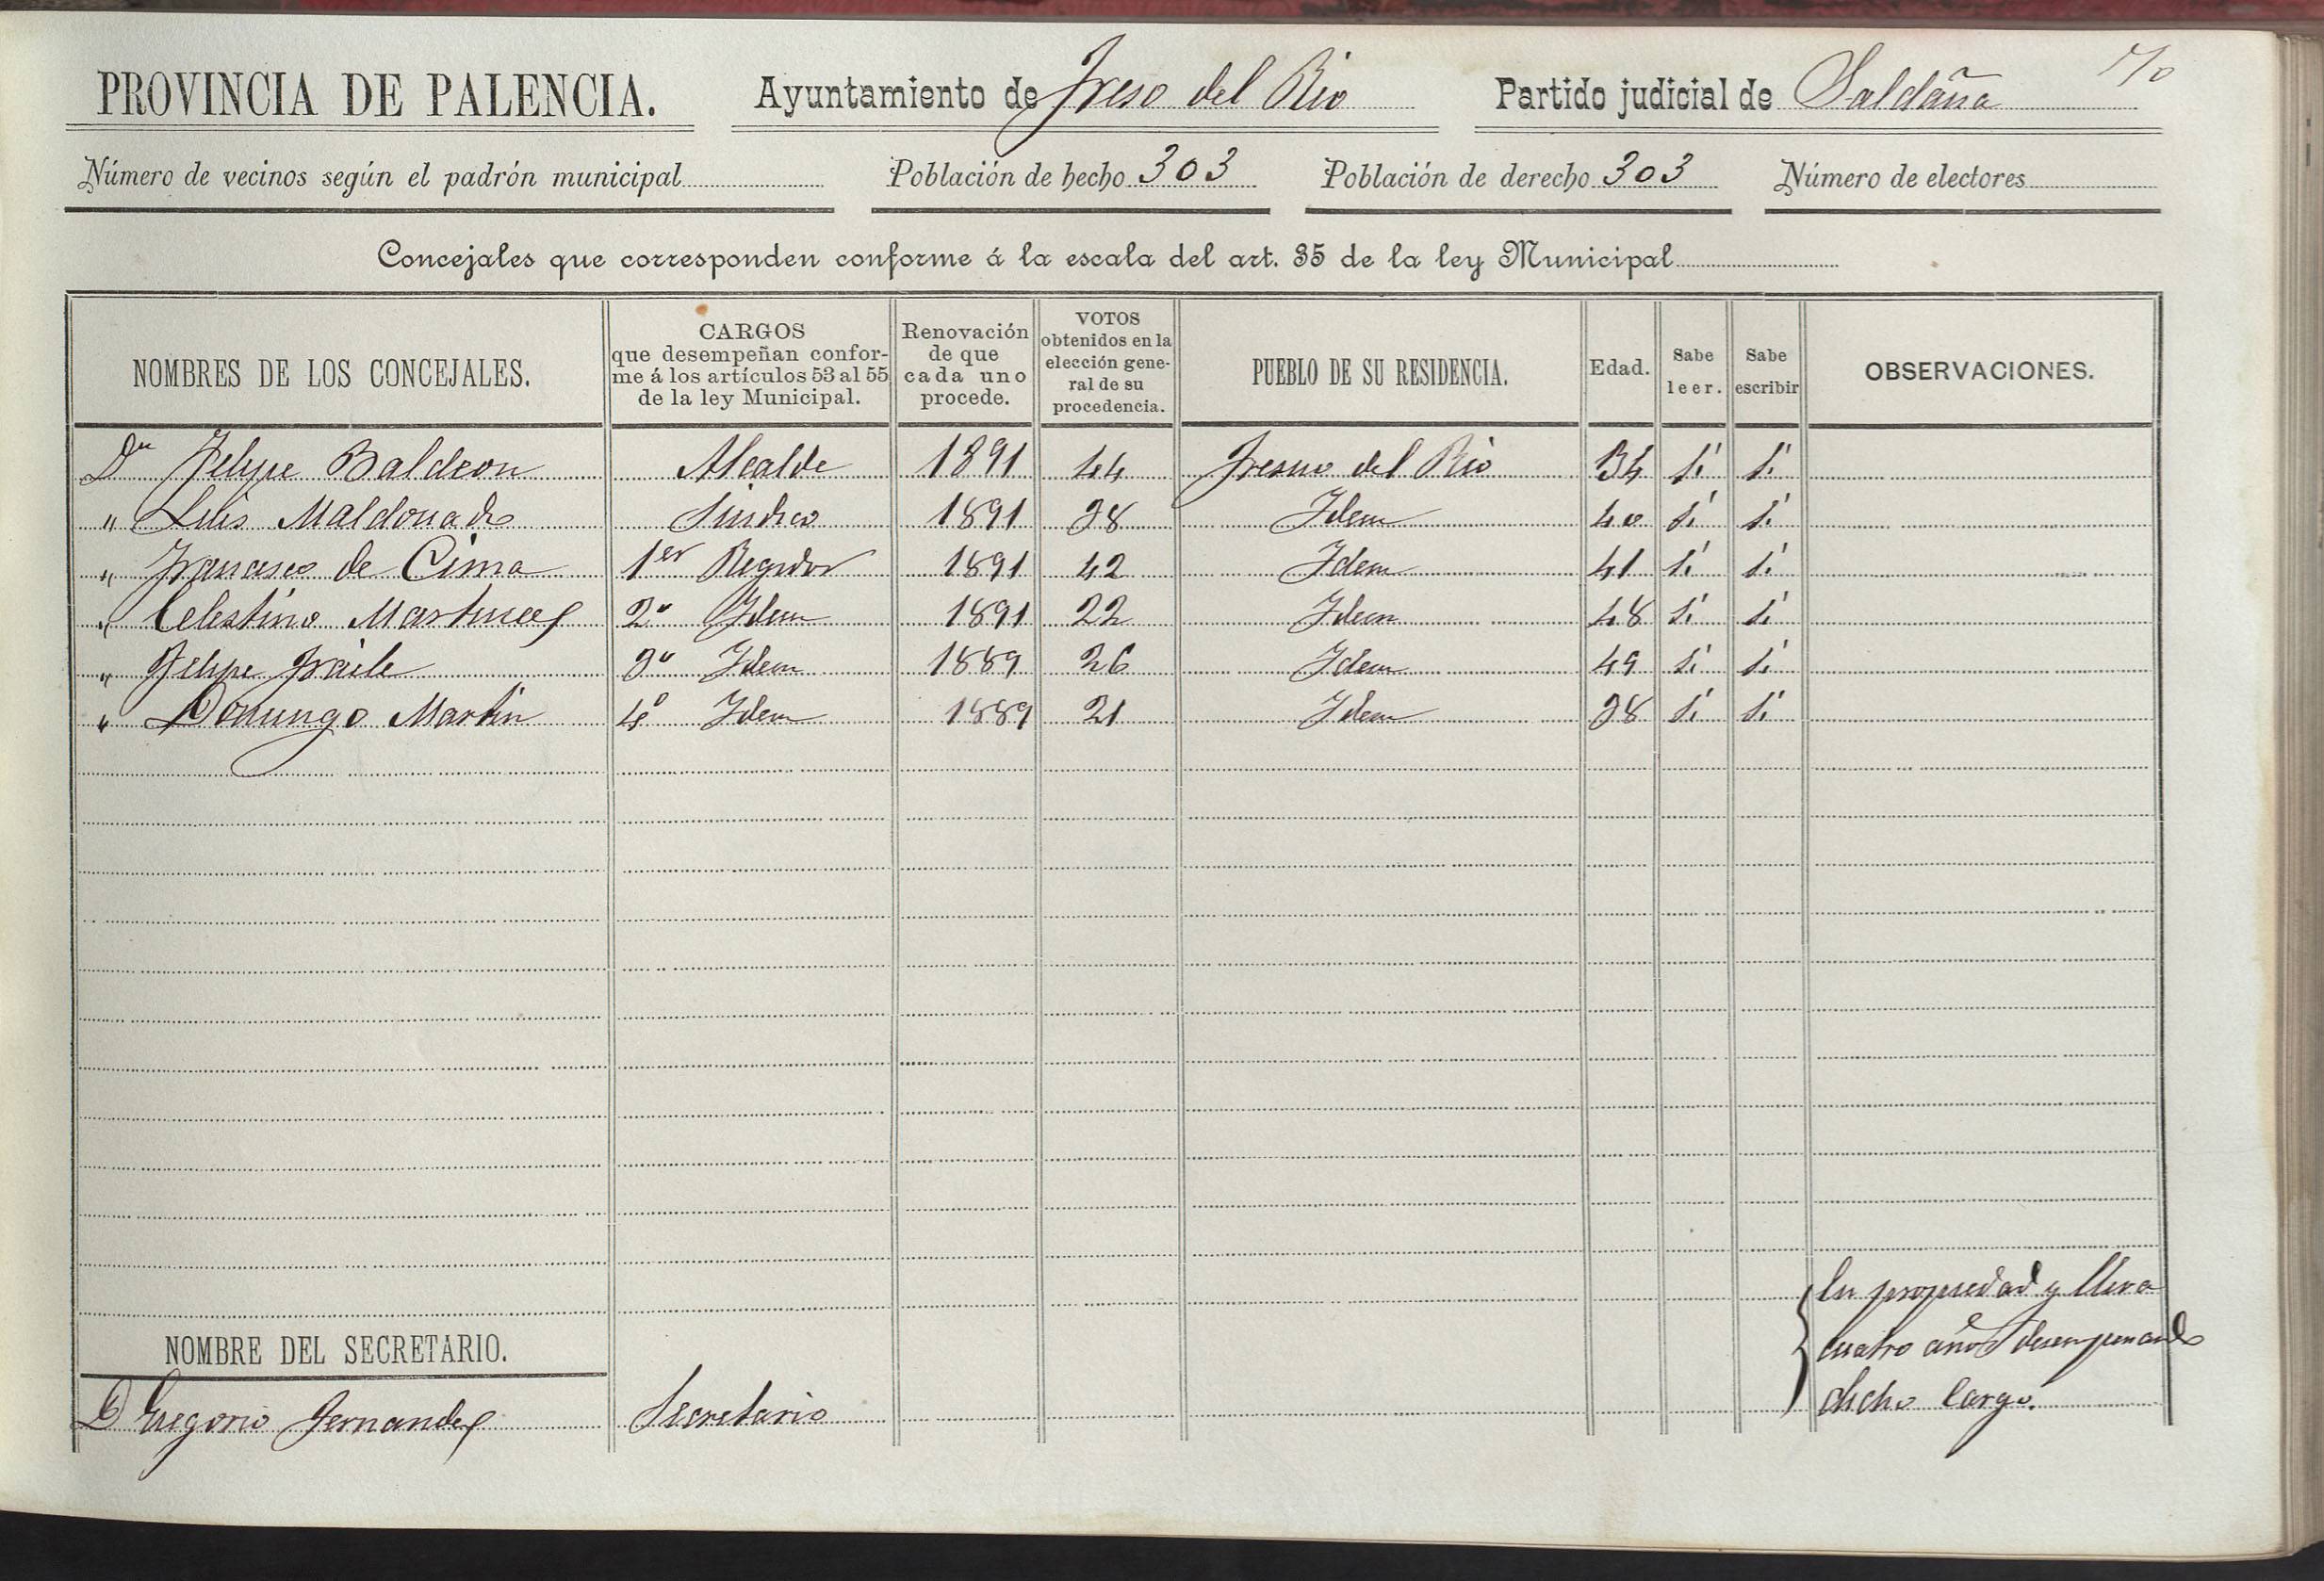 PROVINCIA DE PALENCIA. Ayuntamiento de Freso del Rio Partido judicial de Saldaña
Número de vecinos según el padrón municipal Población de hecho 303 Población de derecho 303 Número de electores
Concejales que corresponden conforme á la escala del art. 35 de la ley Municipal
NOMBRES DE LOS CONCEJALES. CARGOS que desempeñan conforme á los artículos 53 al 55 de la ley Municipal. Renovación de que cada uno procede. VOTOS obtenidos en la elección general de su procedencia. PUEBLO DE SU RESIDENCIA. Edad. Sabe leer. Sabe escribir OBSERVACIONES.
Dn Felipe Baldeon Alcalde 1891 44 Fresno del Rio 34 Si Si
" Luis Maldonado Sindico 1891 38 Idem 40 Si Si
" Francisco de Cima 1er Regidor 1891 42 Idem 41 Si Si
" Celestino Martinez 2º Idem 1891 22 Idem 48 Si Si
" Felipe Fraile 3º Idem 1889 26 Idem 49 Si Si
" Domingo Martin 4º Idem 1889 21 Idem 38 Si Si
NOMBRE DEL SECRETARIO.
D Gregorio Fernandez Secretario
En propiedad y lleva
cuatro años desempenando
dicho Cargo.